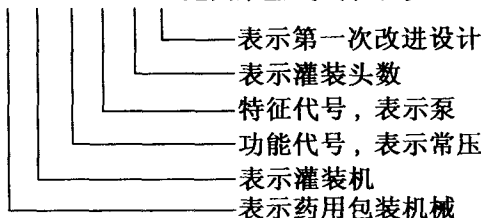 表示第一次改进设计
表示灌装头数
特征代号，表示泵
功能代号，表示常压
表示灌装机
表示药用包装机械